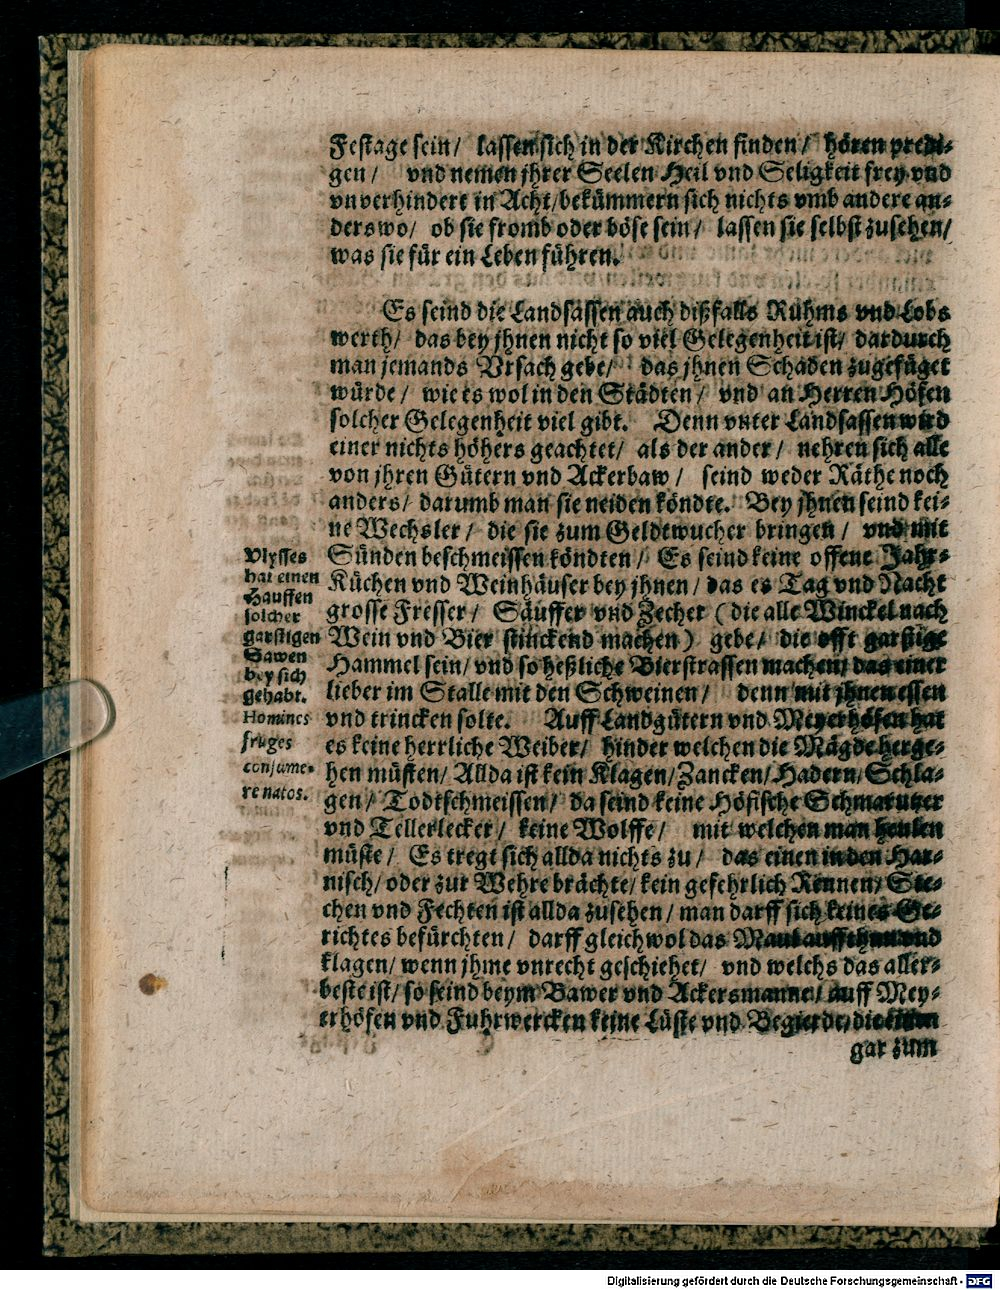 Festage sein/ lassen sich in der Kirchen finden/ hören predi-
gen/ vnd nemen jhrer Seelen Heil vnd Seligkeit frey vnd
vnverhindert in Acht/ bekümmern sich nichts vmb andere an-
derswo/ ob sie fromb oder böse sein/ lassen sie selbst zusehen/
was sie für ein Leben führen.
Es seind die Landsassen auch dißfalls Rühms vnd Lobs
werth/ das bey jhnen nicht so viel Gelegenheit ist/ dardurch
man jemands Vrsach gebe/ das jhnen Schaden zugefüget
würde/ wie es wol in den Städten/ vnd an Herren Höfen
solcher Gelegenheit viel gibt. Denn vnter Landsassen wird
einer nichts höhers geachtet/ als der ander/ nehren sich alle
von jhren Gütern vnd Ackerbaw/ seind weder Räthe noch
anders/ darumb man sie neiden köndte. Bey jhnen seind kei-
ne Wechsler/ die sie zum Geldtwucher bringen/ vnd mit
Sünden beschmeissen köndten/ Es seind keine offene Jahr-
Küchen vnd Weinhäuser bey jhnen/ das es Tag vnd Nacht
grosse Fresser/ Säuffer vnd Zecher (die alle Winckel nach
Wein vnd Bier stinckend machen) gebe/ die offt garstige
Hammel sein/ vnd so heßliche Bierstrassen machen/ das einer
lieber im Stalle mit den Schweinen/ denn mit jhnen essen
vnd trincken solte. Auff Landgütern vnd Meyerhöfen hat
es keine herrliche Weiber/ hinder welchen die Mägde herge-
hen müsten/ Allda ist kein Klagen/ Zancken/ Hadern/ Schla-
gen/ Todtschmeissen/ da seind keine Höfische Schmarutzer
vnd Tellerlecker/ keine Wolffe/ mit welchen man heulen
müste/ Es tregt sich allda nichts zu/ das einen in den Har-
nisch/ oder zur Wehre brächte/ kein gefehrlich Rennen/ Ste-
chen vnd Fechten ist allda zusehen/ man darff sich keines Ge-
richtes befürchten/ darff gleichwol das Maul auffthun vnd
klagen/ wenn jhme vnrecht geschiehet/ vnd welchs das aller-
beste ist/ so seind beym Bawer vnd Ackersmanne/ auff Mey-
erhöfen vnd Fuhrwercken keine Lüste vnd Begierde/ die einen
gar zum
Vlysses
hat einen
Hauffen
solcher
garstigen
Sawen
bey sich
gehabt.
Homines
fruges
consume-
re natos.
Digitalisierung gefördert durch die Deutsche Forschungsgemeinschaft - DFG